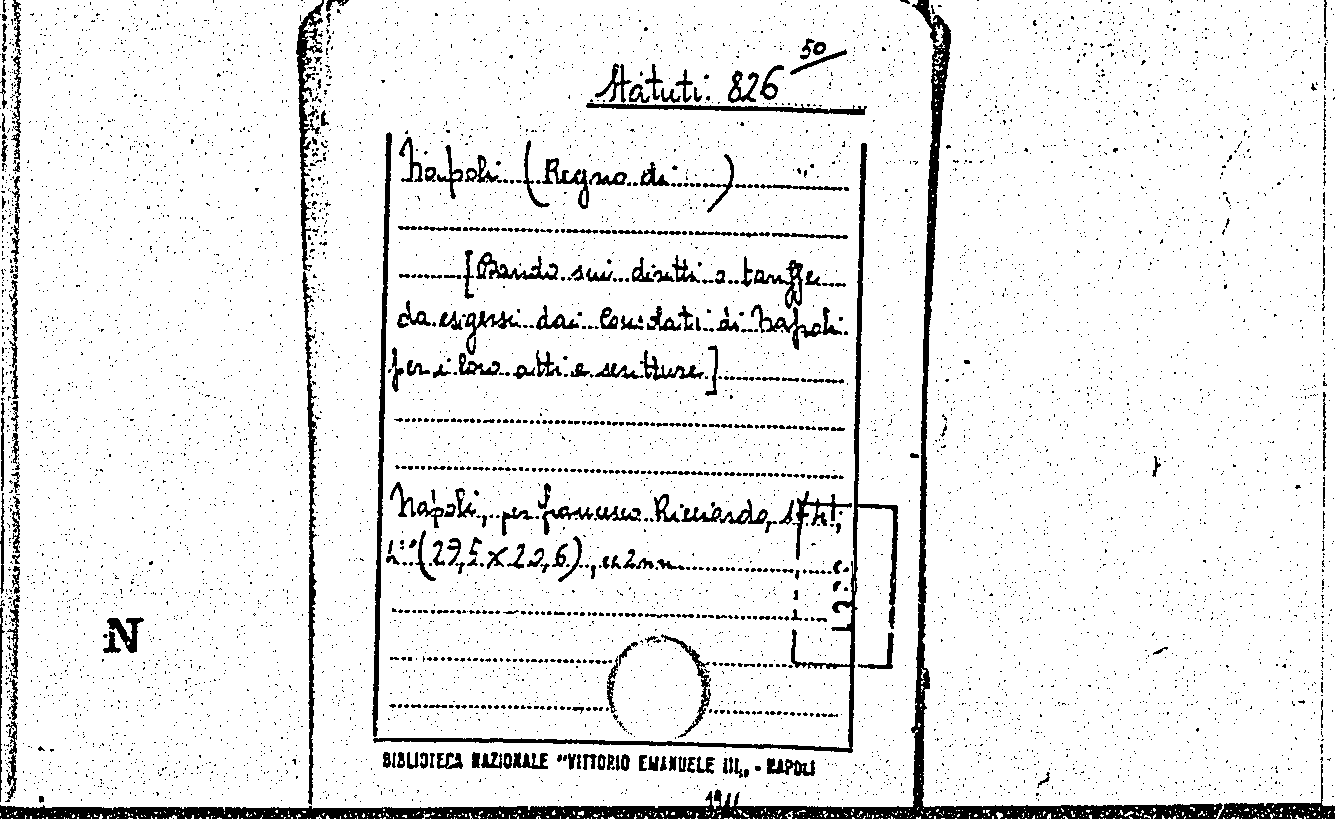 50
Statuti: 826
Napoli (Regno di )
[Bando sui diritti e tariffe
da esigersi dai Consolati di Napoli
per i loro atti e scritture]
Napoli, per Francesco Ricciardo,
(29,5 × 20,6), cc 2 nn.
N
BIBLIOTECA NAZIONALE "VITTORIO EMANUELE III„ - NAPOLI